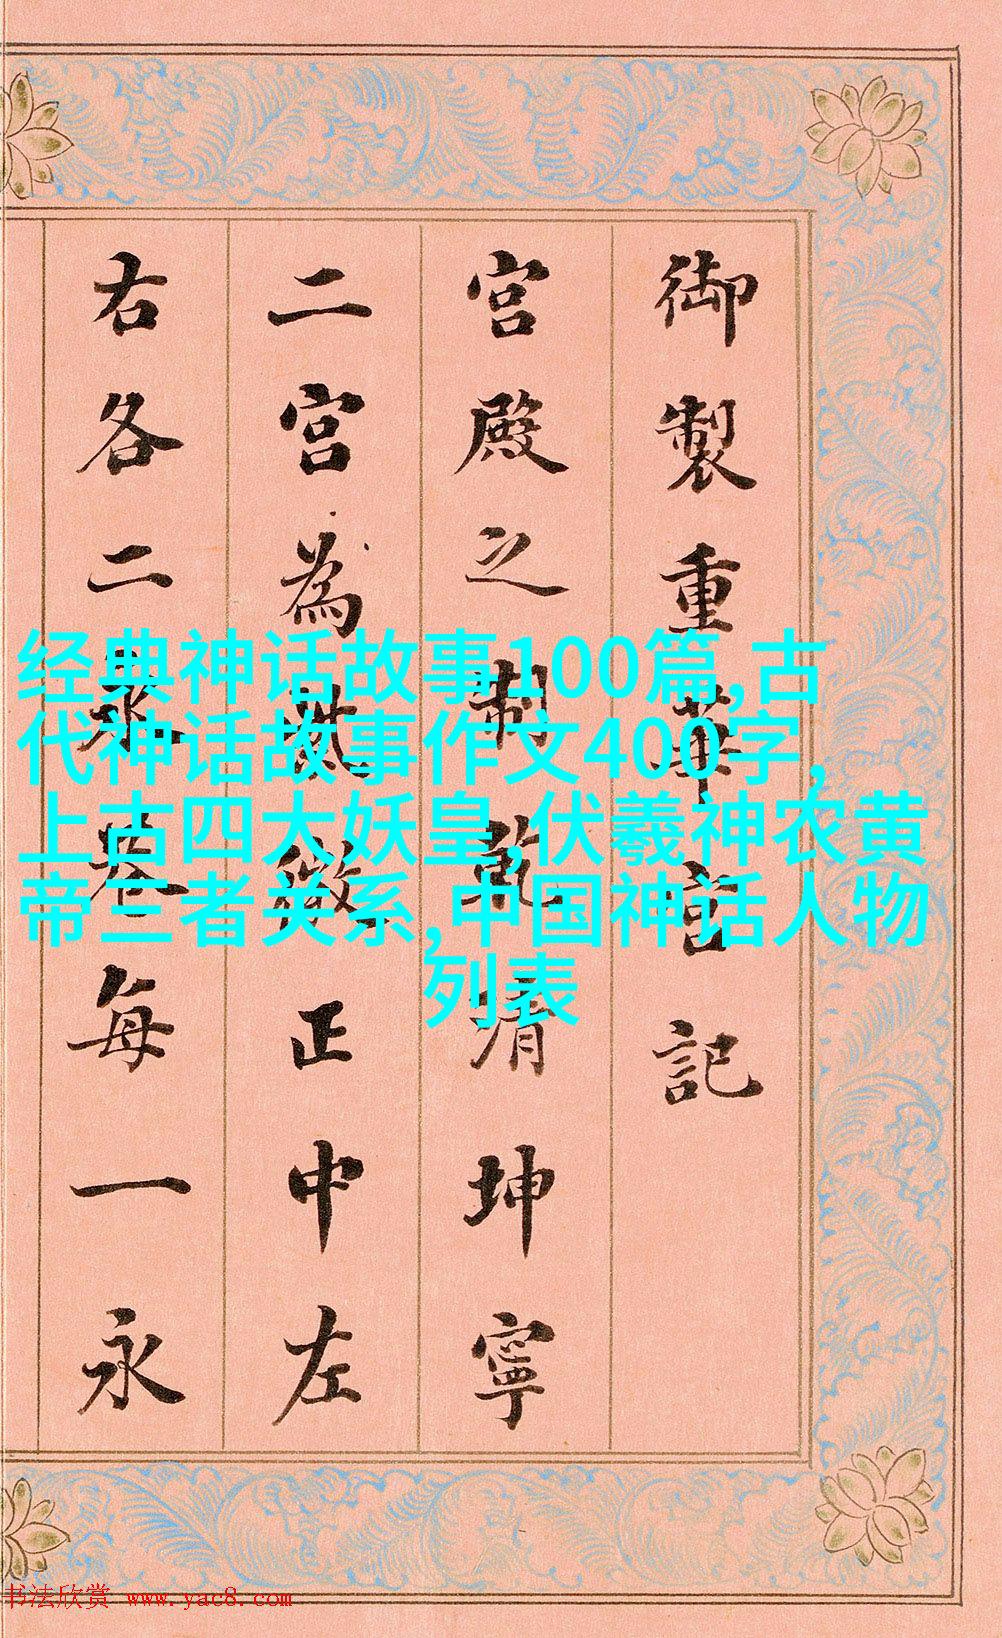 御製重華宮記
宮殿之制乾清坤寧
二宮為紫微正中左
右各二永巷每一永
经典神话故事100篇,古
代神话故事作文400字,
上古四大妖皇,伏羲神农黄
帝三者关系,中国神话人物
列表
书法欣赏 www.yac8.com